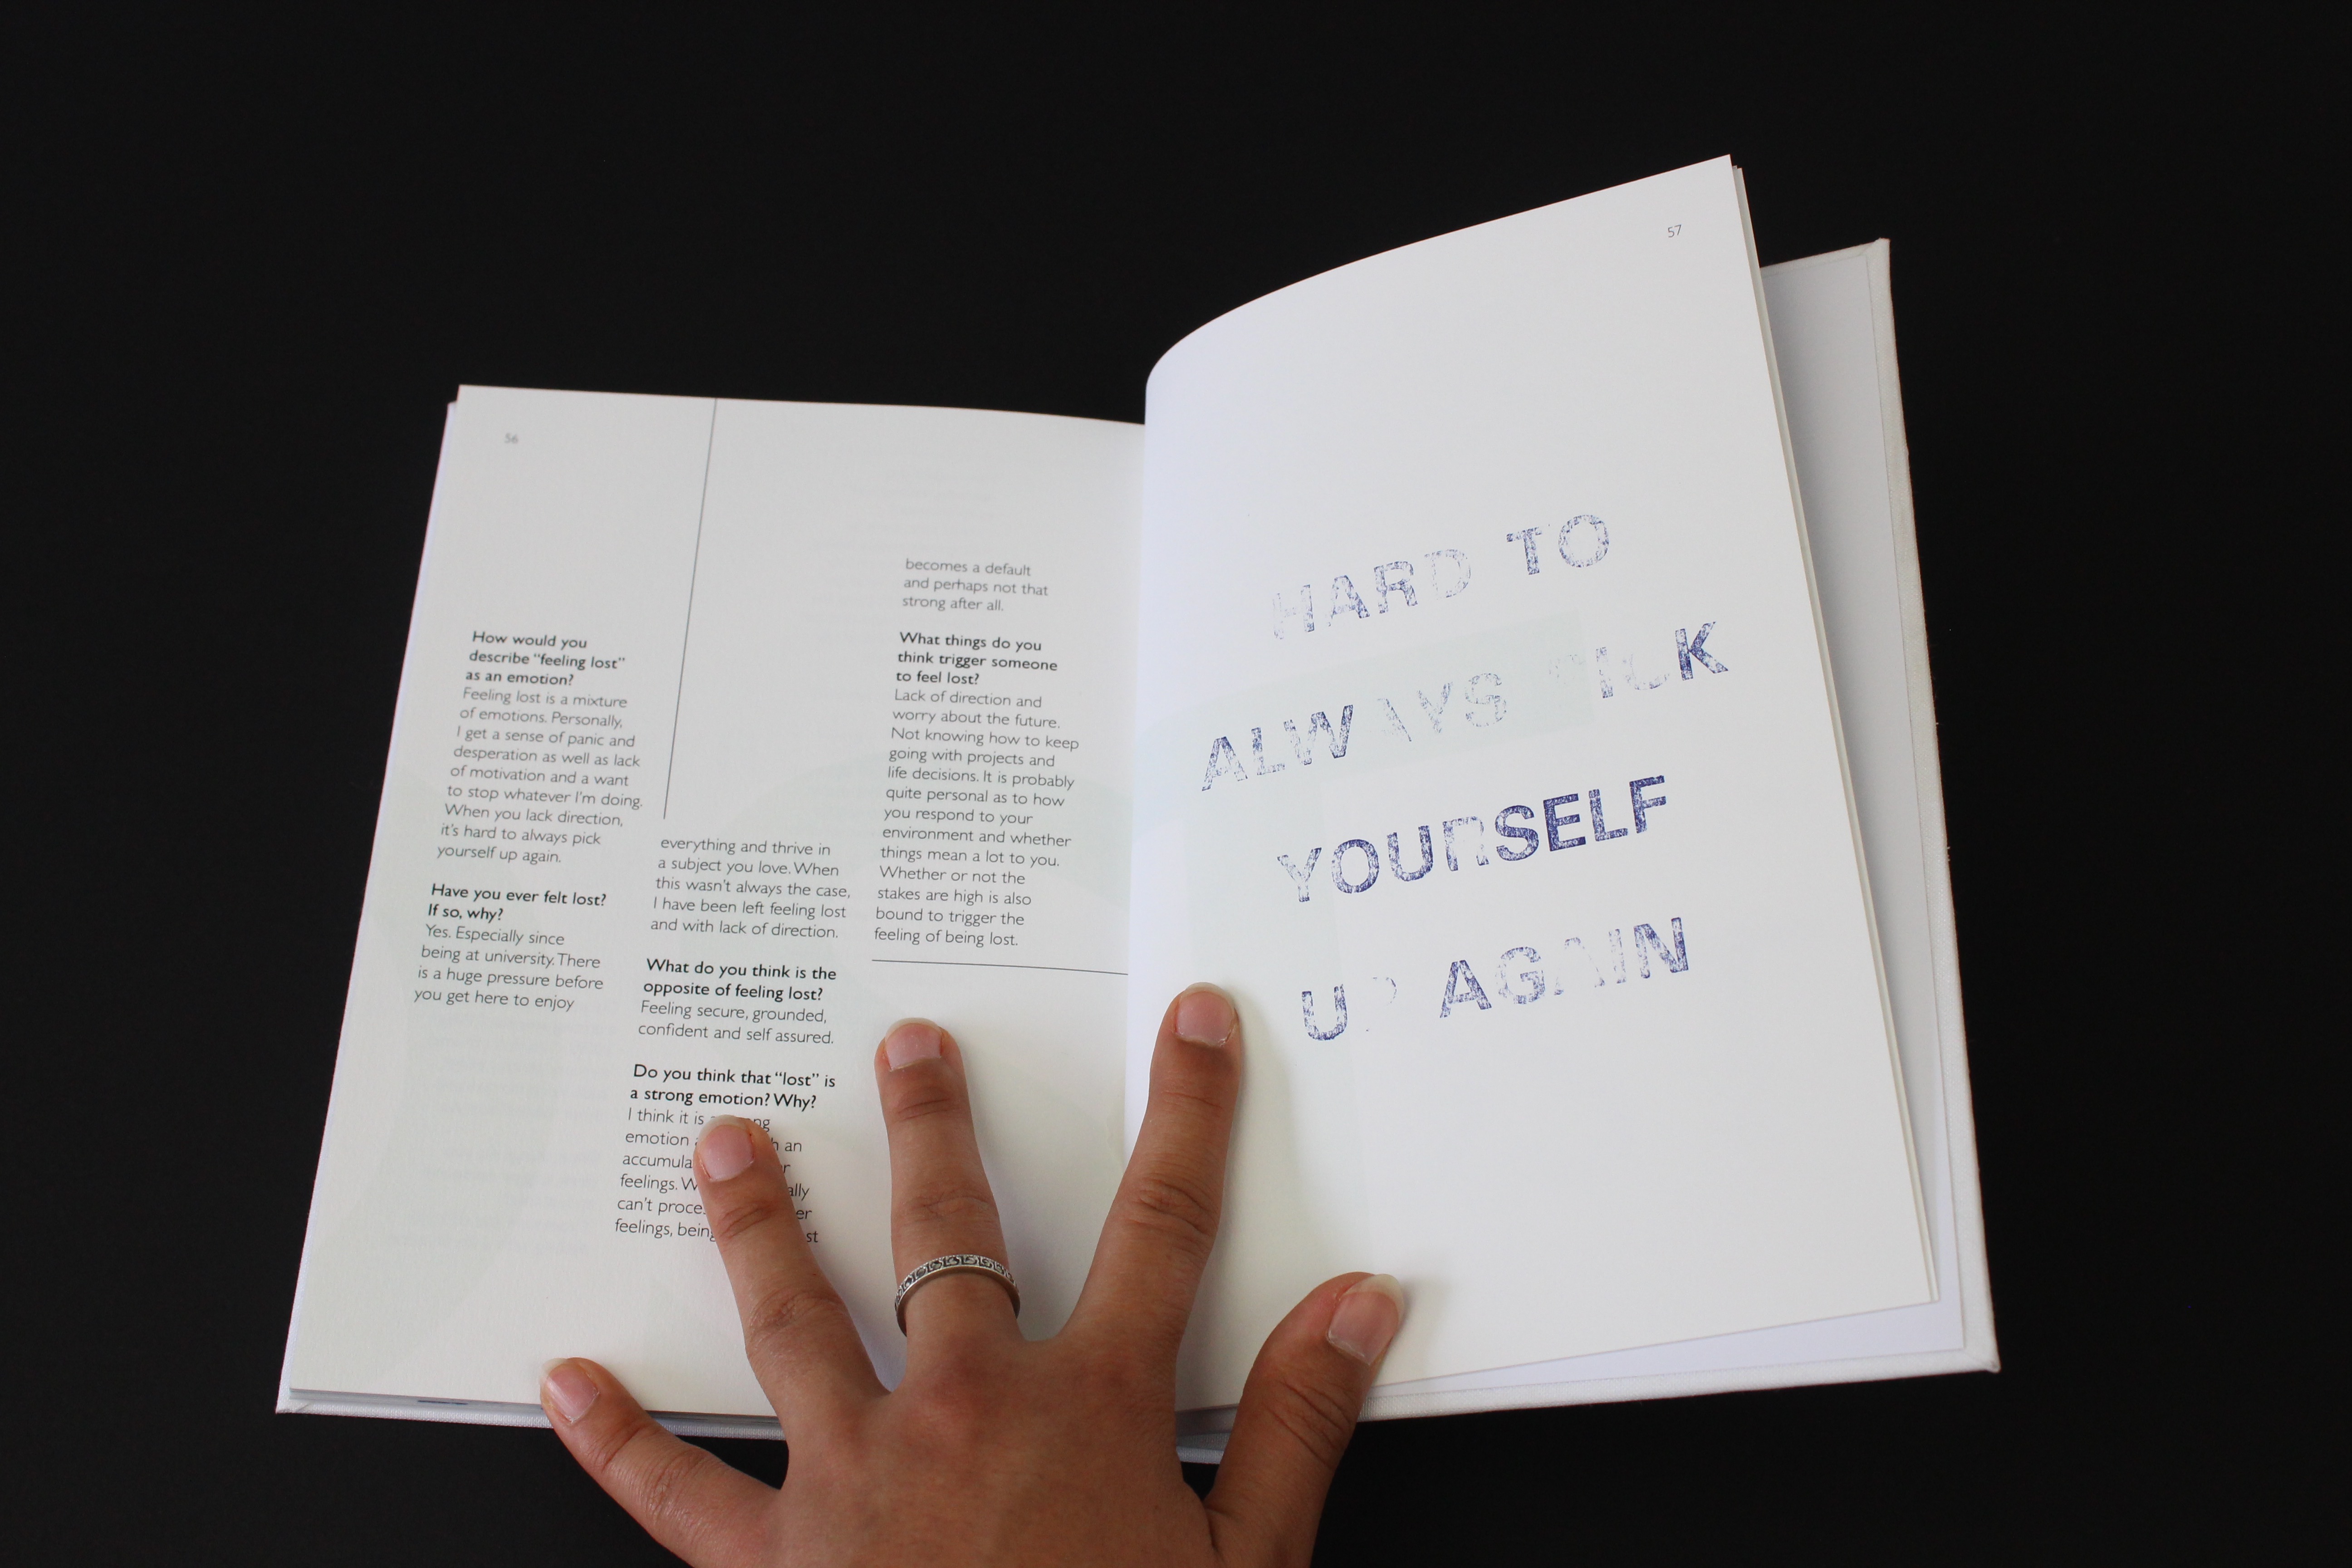 56
How would you
describe “feeling lost”
as an emotion?
Feeling lost is a mixture
of emotions. Personally,
I get a sense of panic and
desperation as well as lack
of motivation and a want
to stop whatever I'm doing.
When you lack direction,
it's hard to always pick
yourself up again.
Have you ever felt lost?
If so, why?
Yes. Especially since
being at university. There
is a huge pressure before
you get here to enjoy
everything and thrive in
a subject you love. When
this wasn't always the case,
I have been left feeling lost
and with lack of direction.
What do you think is the
opposite of feeling lost?
Feeling secure, grounded,
confident and self assured.
Do you think that “lost” is
a strong emotion? Why?
I think it is
emotion an
feelings.
can't
feelings,
becomes a default
and perhaps not that
strong after all.
What things do you
think trigger someone
to feel lost?
Lack of direction and
worry about the future.
Not knowing how to keep
going with projects and
life decisions. It is probably
quite personal as to how
you respond to your
environment and whether
things mean a lot to you.
Whether or not the
stakes are high is also
bound to trigger the
feeling of being lost.
57
HARD TO
ALWAYS PICK
YOURSELF
UP AGAIN